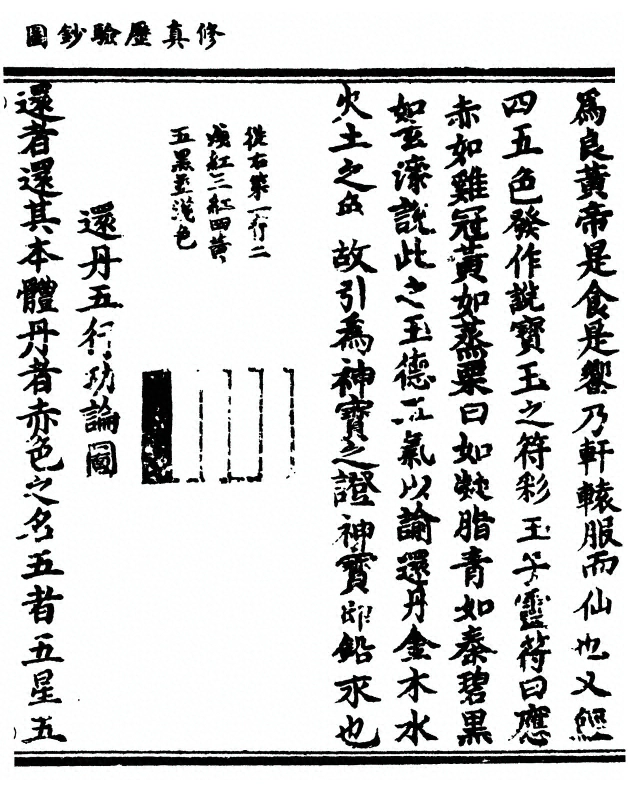 修真歷驗鈔圖
為良黃帝是食是饗乃軒轅服而仙也又經
四五色發作說寶玉之符彩玉子靈符曰應
赤如雞冠黃如蒸栗白如凝脂青如秦碧黑
如玄漆說此之玉德五氣以論還丹金木水
火土之 故引為神寶之證神寶即鉛求也
從右第一行二
淺紅三紅四黃
五黑並淺色
還丹五行功論圖
還者還其本體丹者赤色之名五者五星五